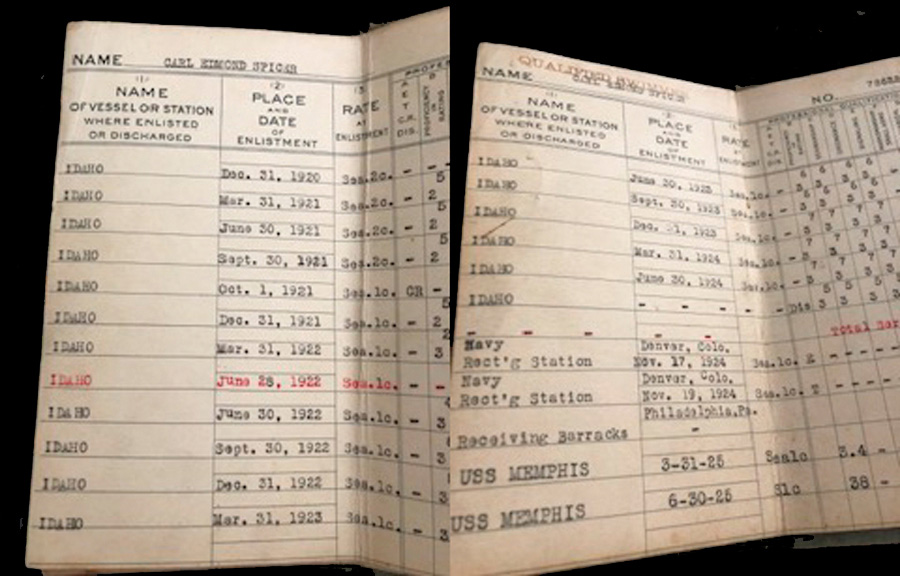 NAME CARL EDMOND SPICER
PROFE
(1) (2) (3)
NAME
OF VESSEL OR STATION
WHERE ENLISTED
OR DISCHARGED
PLACE
AND
DATE
OF
ENLISTMENT
RATE
AT
ENLISTMENT
PROFICIENCY
RATING
IDAHO Dec. 31, 1920 Sea.2c. - -
IDAHO Mar. 31, 1921 Sea.2c. - 2
IDAHO June 30, 1921 Sea.2c. - 2
IDAHO Sept. 30, 1921 Sea.2c. - 2
IDAHO Oct. 1, 1921 Sea.1c. CR -
IDAHO Dec. 31, 1921 Sea.1c. - 2
IDAHO Mar. 31, 1922 Sea.1c. - 3
IDAHO June 28, 1922 Sea.1c. - -
IDAHO June 30, 1922 Sea.1c. - 3
IDAHO Sept. 30, 1922 Sea.1c. - 3
IDAHO Dec. 31, 1922 Sea.1c. - 3
IDAHO Mar. 31, 1923 Sea.1c. - 3
QUALIFIED SWIMMER
NAME CARL EDMOND SPICER
NO.
NAME
OF VESSEL OR STATION
WHERE ENLISTED
OR DISCHARGED
PLACE
AND
DATE
OF
ENLISTMENT
RATE
AT
ENLISTMENT
IDAHO June 30, 1923 Sea.1c. -
IDAHO Sept. 30, 1923 Sea.1c. -
IDAHO Dec. 31, 1923 Sea.1c. -
IDAHO Mar. 31, 1924 Sea.1c. -
IDAHO June 30, 1924 Sea.1c. -
IDAHO - - - - Dis
Total Ser
- - - - -
Navy Denver, Colo.
Rect'g Station Nov. 17, 1924 Sea.1c. E - - - -
Navy Denver, Colo.
Rect'g Station Nov. 19, 1924 Sea.1c. T - - - -
Philadelphia,Pa.
Receiving Barracks -
USS MEMPHIS 3-31-25 Sea1c 3.4 -
USS MEMPHIS 6-30-25 S1c 38 -